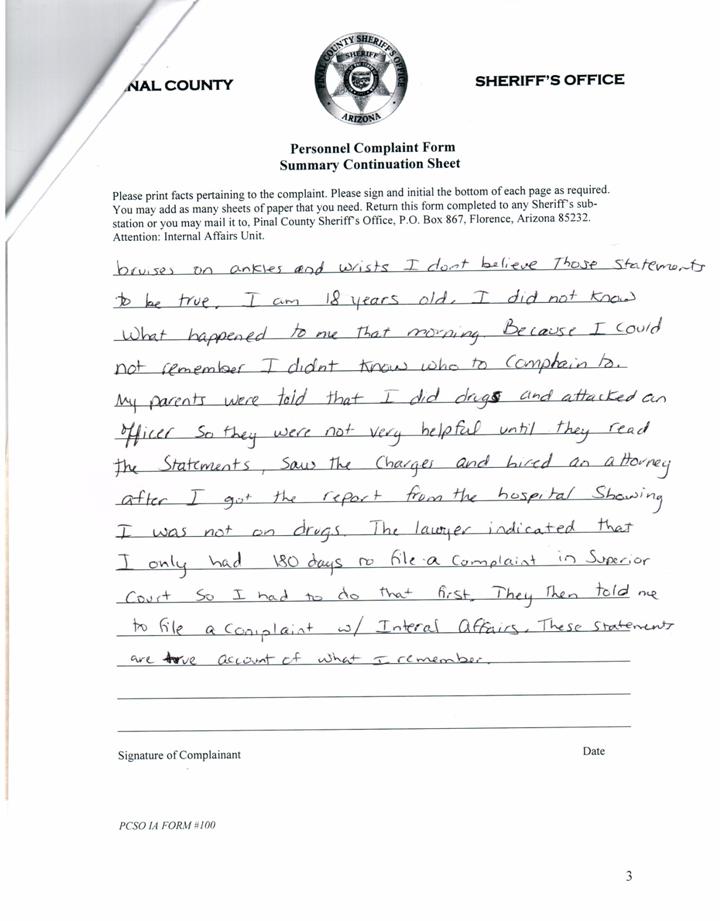 NAL COUNTY
PINAL COUNTY SHERIFF'S OFFICE
SHERIFF
ARIZONA
SHERIFF'S OFFICE
Personnel Complaint Form
Summary Continuation Sheet
Please print facts pertaining to the complaint. Please sign and initial the bottom of each page as required.
You may add as many sheets of paper that you need. Return this form completed to any Sheriff's sub-
station or you may mail it to, Pinal County Sheriff's Office, P.O. Box 867, Florence, Arizona 85232.
Attention: Internal Affairs Unit.
bruises on ankles and wrists I dont believe Those Statements
to be true. I am 18 years old. I did not know
What happened to me that morning. Because I could
not remember I didnt know who to Complain to.
My parents were told that I did drugs and attacked an
officer So they were not very helpful until they read
the Statements, Saw the Charges and hired an attorney
after I got the report from the hospital Showing
I was not on drugs. The lawyer indicated that
I only had 180 days to file a Complaint in Superior
Court So I had to do that first. They Then told me
to file a Complaint w/ Interal Affairs. These statements
are true account of what I remember.
Signature of Complainant
Date
PCSO IA FORM #100
3